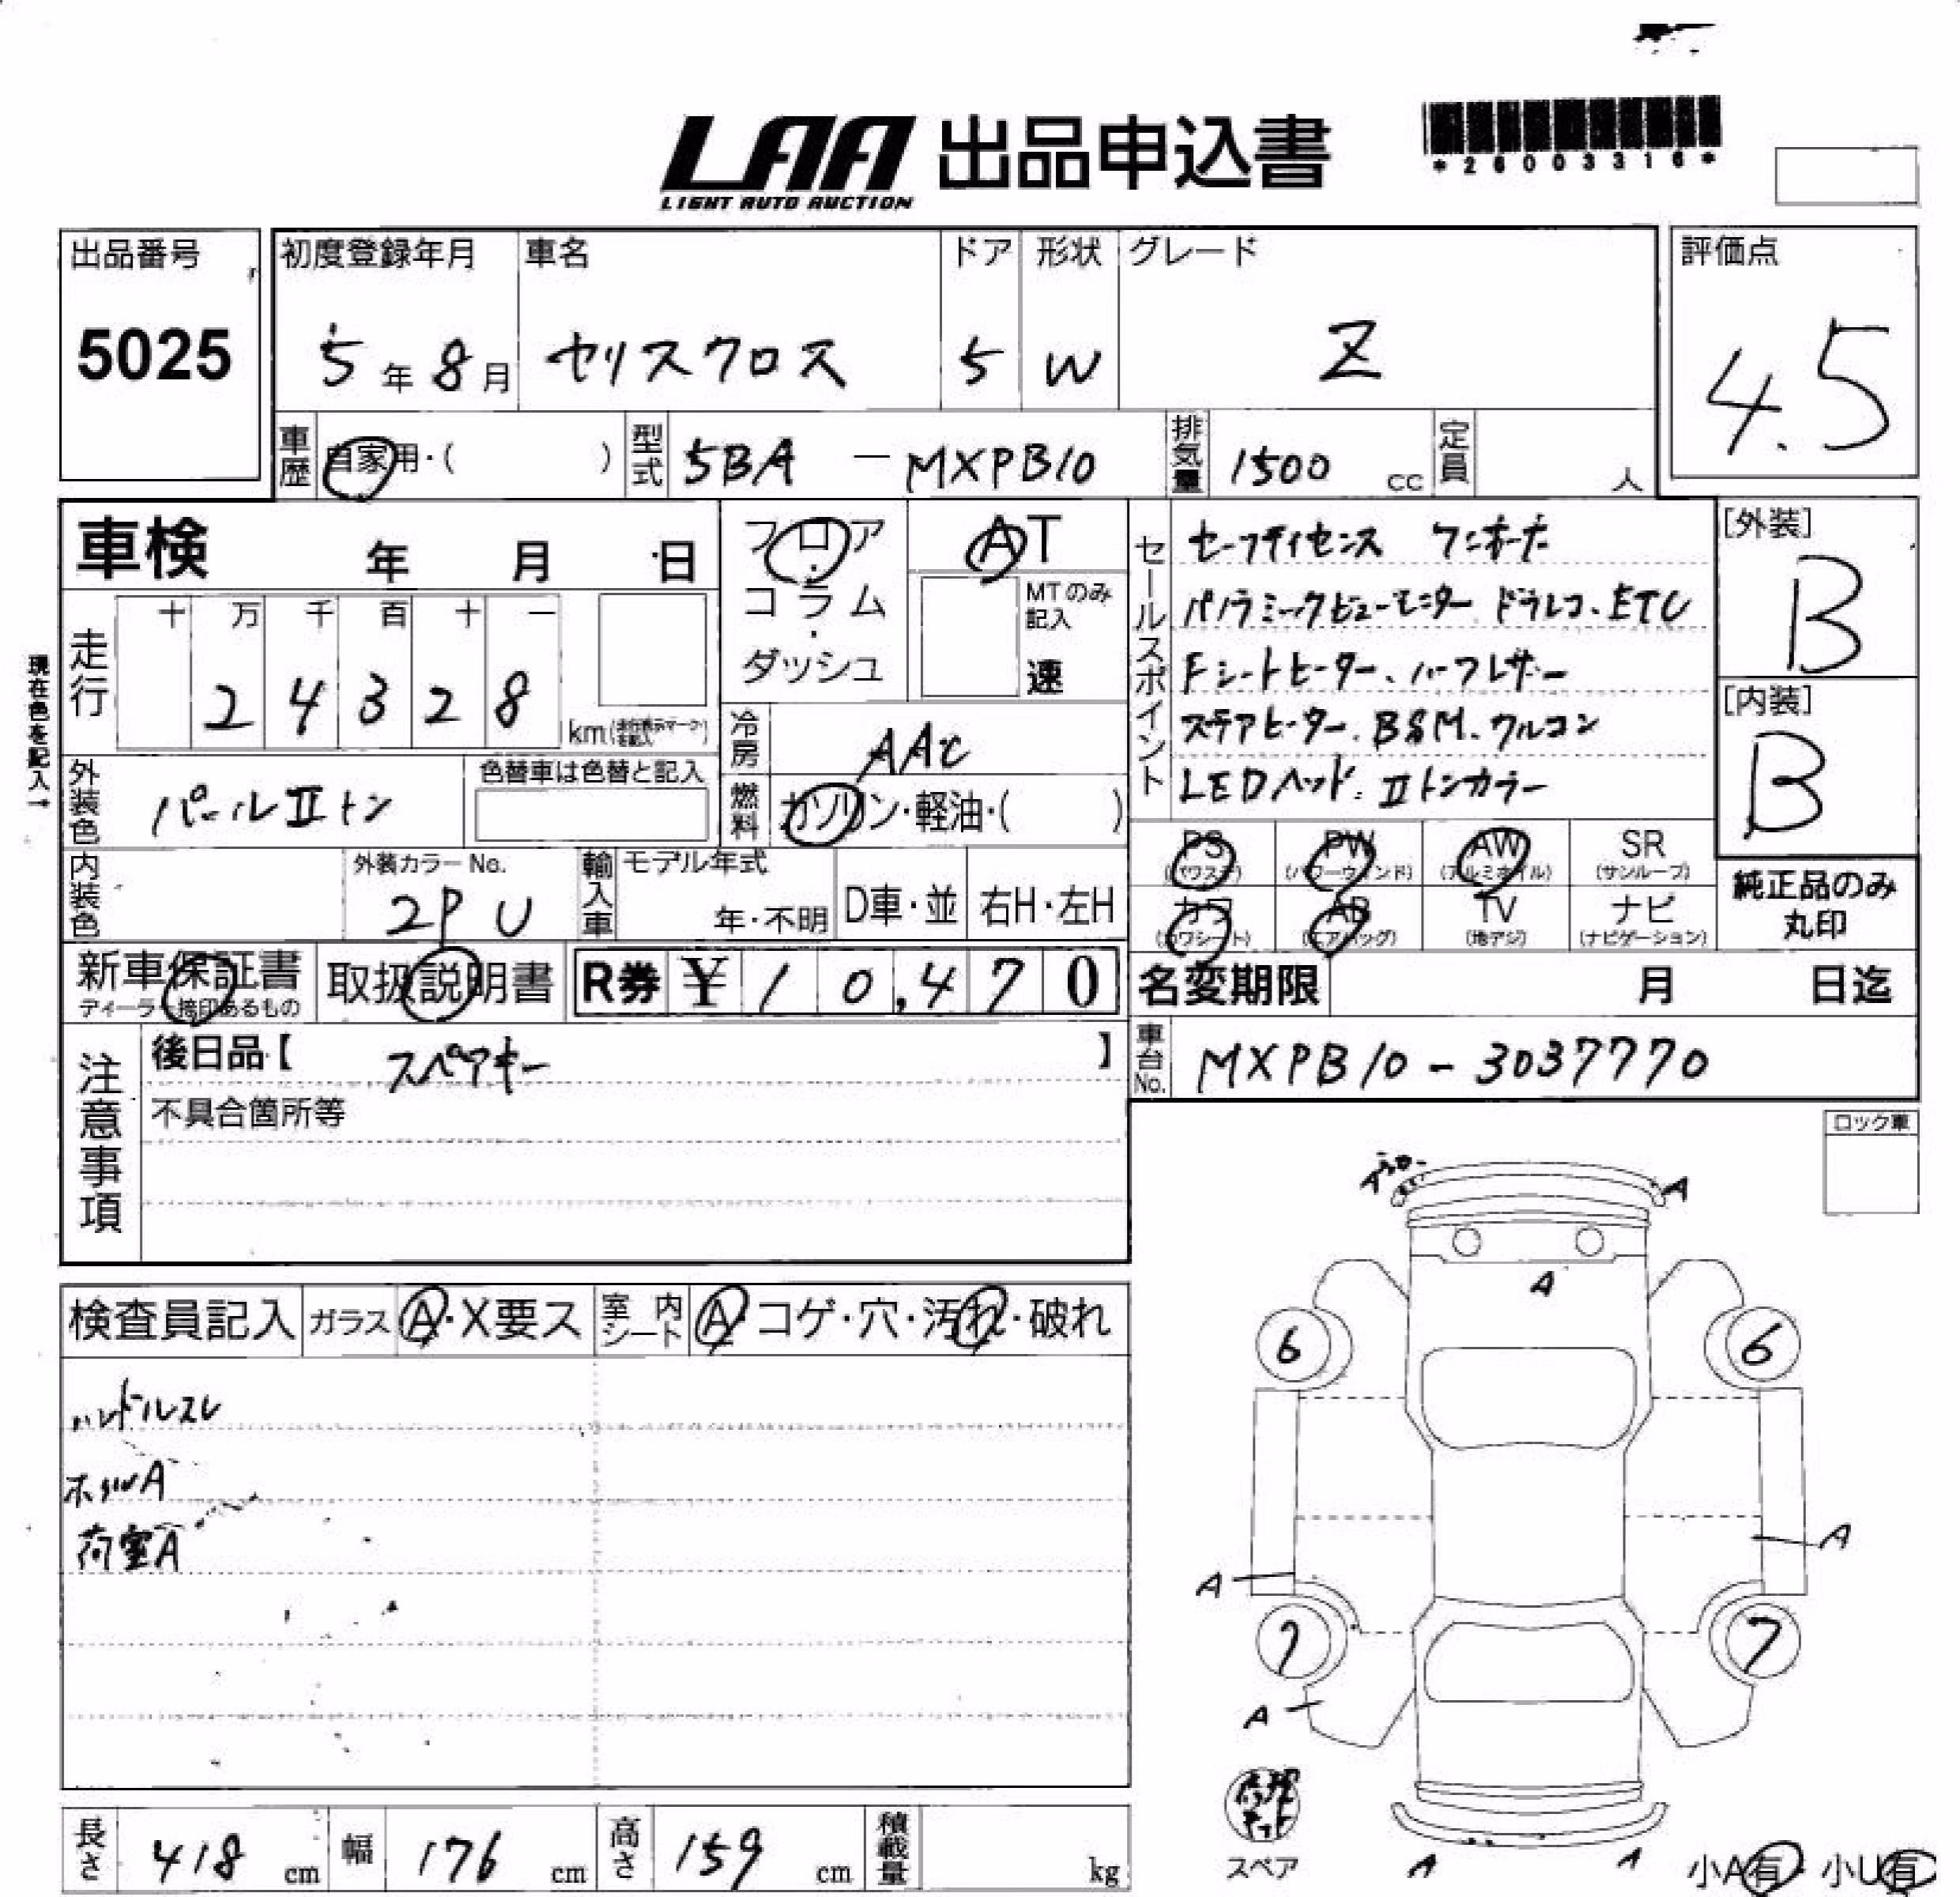 LAA 出品申込書
LIGHT AUTO AUCTION
*26003316*
出品番号
5025
初度登録年月
5年8月
車名
セリスクロス
ドア
5
形状
W
グレード
Z
評価点
4.5
車歴 自家用・( )
型式 5BA － MXPB10
排気量 1500 cc
定員 人
車検 年 月 日
フロア・コラム・ダッシュ
AT
MTのみ記入
速
セールスポイント
セーフティセンス ワンオーナー
パノラミックビューモニター ドラレコ、ETC
Fシートヒーター、ハーフレザー
ステアヒーター、BSM、クルコン
LEDヘッド、Ⅱトンカラー
[外装]
B
[内装]
B
現在色を記入→
走行
十 万 千 百 十 一
2 4 3 2 8
km
冷房 AAC
燃料 ガソリン・軽油・( )
外装色 パールⅡトン
色替車は色替と記入
内装色
外装カラーNo.
2PU
輸入車
モデル年式
年・不明
D車・並
右H・左H
PS (パワステ)
PW (パワーウィンド)
AW (アルミホイル)
SR (サンルーフ)
カワ (カワシート)
AB (エアバッグ)
TV (地デジ)
ナビ (ナビゲーション)
純正品のみ
丸印
新車保証書
ディーラー捺印あるもの
取扱説明書
R券 ¥10,470
名変期限 月 日迄
車台No. MXPB10-3037770
注意事項
後日品【 スペアキー 】
不具合箇所等
ロック車
検査員記入
ガラス A・X要ス
室内シート A・コゲ・穴・汚れ・破れ
ハンドルスレ
ホイルA
荷室A
A
A
6
6
A
A
7
7
A
スペア
A
A
小A有・小U有
長さ 418 cm
幅 176 cm
高さ 159 cm
積載量 kg